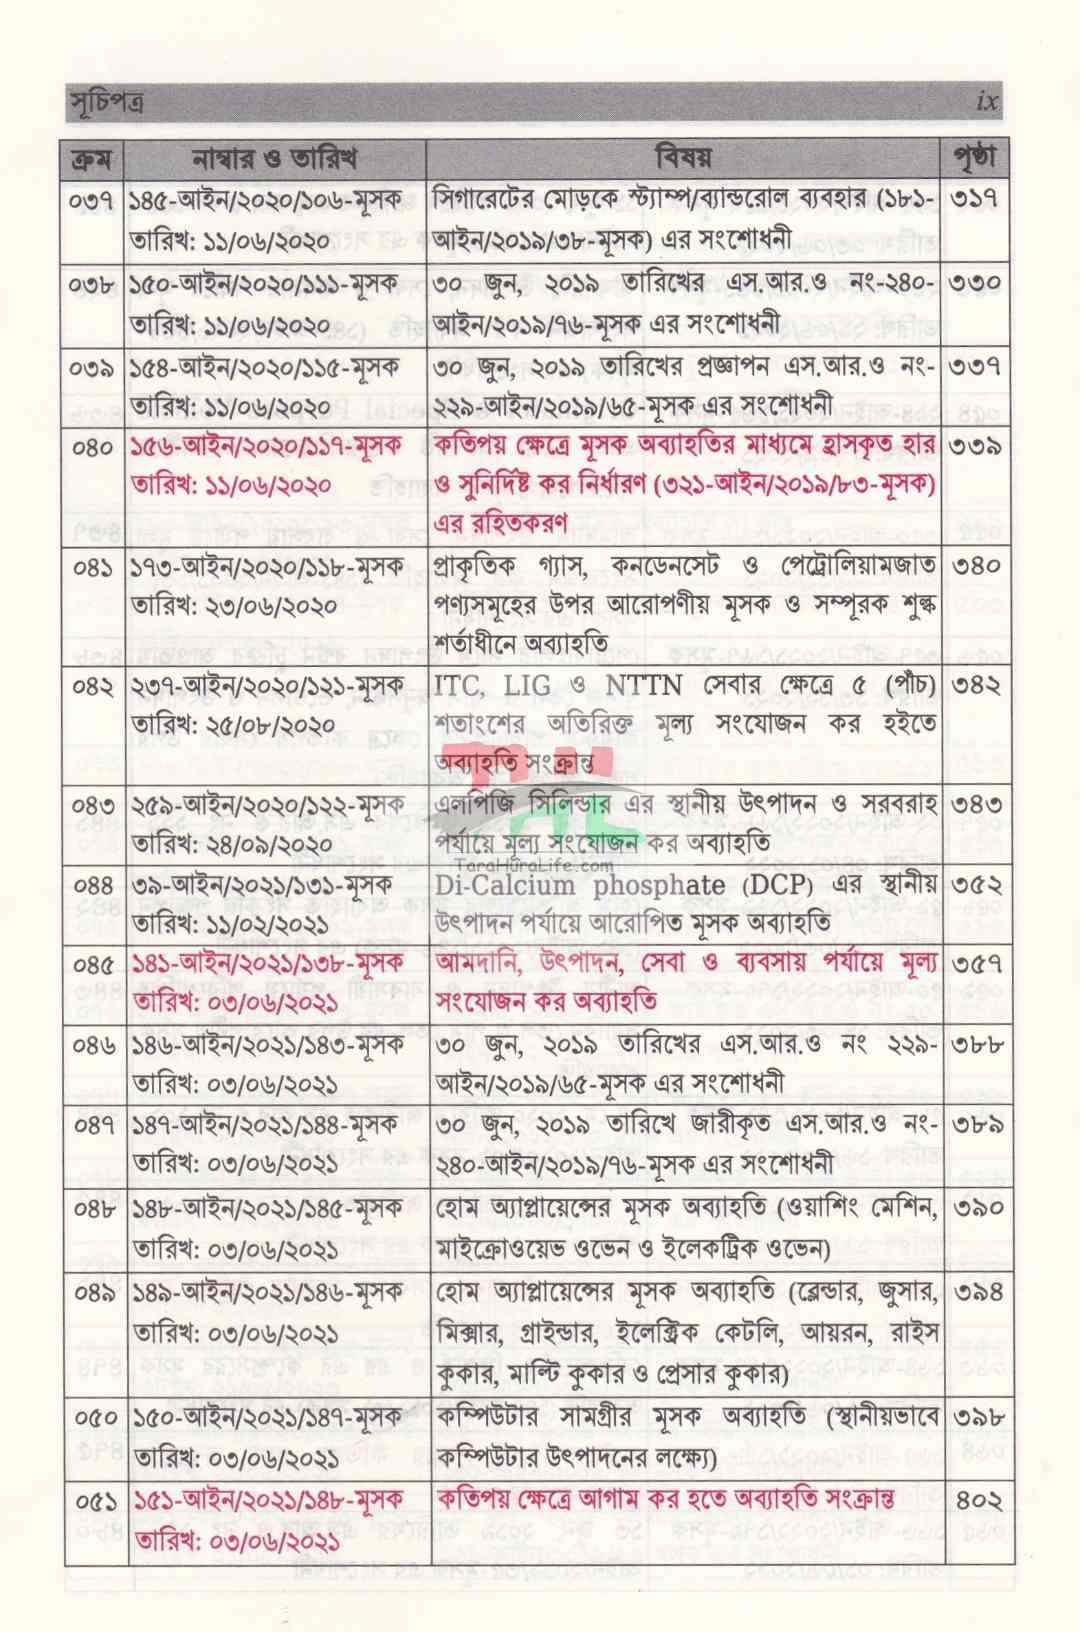 সূচিপত্র ix
ক্রম নাম্বার ও তারিখ বিষয় পৃষ্ঠা
০৩৭ ১৪৫-আইন/২০২০/১০৬-মূসক সিগারেটের মোড়কে স্ট্যাম্প/ব্যান্ডরোল ব্যবহার (১৮১- ৩১৭
তারিখ: ১১/০৬/২০২০ আইন/২০১৯/৩৮-মূসক) এর সংশোধনী
০৩৮ ১৫০-আইন/২০২০/১১১-মূসক ৩০ জুন, ২০১৯ তারিখের এস.আর.ও নং-২৪০- ৩৩০
তারিখ: ১১/০৬/২০২০ আইন/২০১৯/৭৬-মূসক এর সংশোধনী
০৩৯ ১৫৪-আইন/২০২০/১১৫-মূসক ৩০ জুন, ২০১৯ তারিখের প্রজ্ঞাপন এস.আর.ও নং- ৩৩৭
তারিখ: ১১/০৬/২০২০ ২২৯-আইন/২০১৯/৬৫-মূসক এর সংশোধনী
০৪০ ১৫৬-আইন/২০২০/১১৭-মূসক কতিপয় ক্ষেত্রে মূসক অব্যাহতির মাধ্যমে হ্রাসকৃত হার ৩৩৯
তারিখ: ১১/০৬/২০২০ ও সুনির্দিষ্ট কর নির্ধারণ (৩২১-আইন/২০১৯/৮৩-মূসক)
এর রহিতকরণ
০৪১ ১৭৩-আইন/২০২০/১১৮-মূসক প্রাকৃতিক গ্যাস, কনডেনসেট ও পেট্রোলিয়ামজাত ৩৪০
তারিখ: ২৩/০৬/২০২০ পণ্যসমূহের উপর আরোপণীয় মূসক ও সম্পূরক শুল্ক
শর্তাধীনে অব্যাহতি
০৪২ ২৩৭-আইন/২০২০/১২১-মূসক ITC, LIG ও NTTN সেবার ক্ষেত্রে ৫ (পাঁচ) ৩৪২
তারিখ: ২৫/০৮/২০২০ শতাংশের অতিরিক্ত মূল্য সংযোজন কর হইতে
অব্যাহতি সংক্রান্ত
০৪৩ ২৫৯-আইন/২০২০/১২২-মূসক এলপিজি সিলিন্ডার এর স্থানীয় উৎপাদন ও সরবরাহ ৩৪৩
তারিখ: ২৪/০৯/২০২০ পর্যায়ে মূল্য সংযোজন কর অব্যাহতি
THL
TaraHuraLife.com
০৪৪ ৩৯-আইন/২০২১/১৩১-মূসক Di-Calcium phosphate (DCP) এর স্থানীয় ৩৫২
তারিখ: ১১/০২/২০২১ উৎপাদন পর্যায়ে আরোপিত মূসক অব্যাহতি
০৪৫ ১৪১-আইন/২০২১/১৩৮-মূসক আমদানি, উৎপাদন, সেবা ও ব্যবসায় পর্যায়ে মূল্য ৩৫৭
তারিখ: ০৩/০৬/২০২১ সংযোজন কর অব্যাহতি
০৪৬ ১৪৬-আইন/২০২১/১৪৩-মূসক ৩০ জুন, ২০১৯ তারিখের এস.আর.ও নং ২২৯- ৩৮৮
তারিখ: ০৩/০৬/২০২১ আইন/২০১৯/৬৫-মূসক এর সংশোধনী
০৪৭ ১৪৭-আইন/২০২১/১৪৪-মূসক ৩০ জুন, ২০১৯ তারিখে জারীকৃত এস.আর.ও নং- ৩৮৯
তারিখ: ০৩/০৬/২০২১ ২৪০-আইন/২০১৯/৭৬-মূসক এর সংশোধনী
০৪৮ ১৪৮-আইন/২০২১/১৪৫-মূসক হোম অ্যাপ্লায়েন্সের মূসক অব্যাহতি (ওয়াশিং মেশিন, ৩৯০
তারিখ: ০৩/০৬/২০২১ মাইক্রোওয়েভ ওভেন ও ইলেকট্রিক ওভেন)
০৪৯ ১৪৯-আইন/২০২১/১৪৬-মূসক হোম অ্যাপ্লায়েন্সের মূসক অব্যাহতি (ব্লেন্ডার, জুসার, ৩৯৪
তারিখ: ০৩/০৬/২০২১ মিক্সার, গ্রাইন্ডার, ইলেক্ট্রিক কেটলি, আয়রন, রাইস
কুকার, মাল্টি কুকার ও প্রেসার কুকার)
০৫০ ১৫০-আইন/২০২১/১৪৭-মূসক কম্পিউটার সামগ্রীর মূসক অব্যাহতি (স্থানীয়ভাবে ৩৯৮
তারিখ: ০৩/০৬/২০২১ কম্পিউটার উৎপাদনের লক্ষ্যে)
০৫১ ১৫১-আইন/২০২১/১৪৮-মূসক কতিপয় ক্ষেত্রে আগাম কর হতে অব্যাহতি সংক্রান্ত ৪০২
তারিখ: ০৩/০৬/২০২১